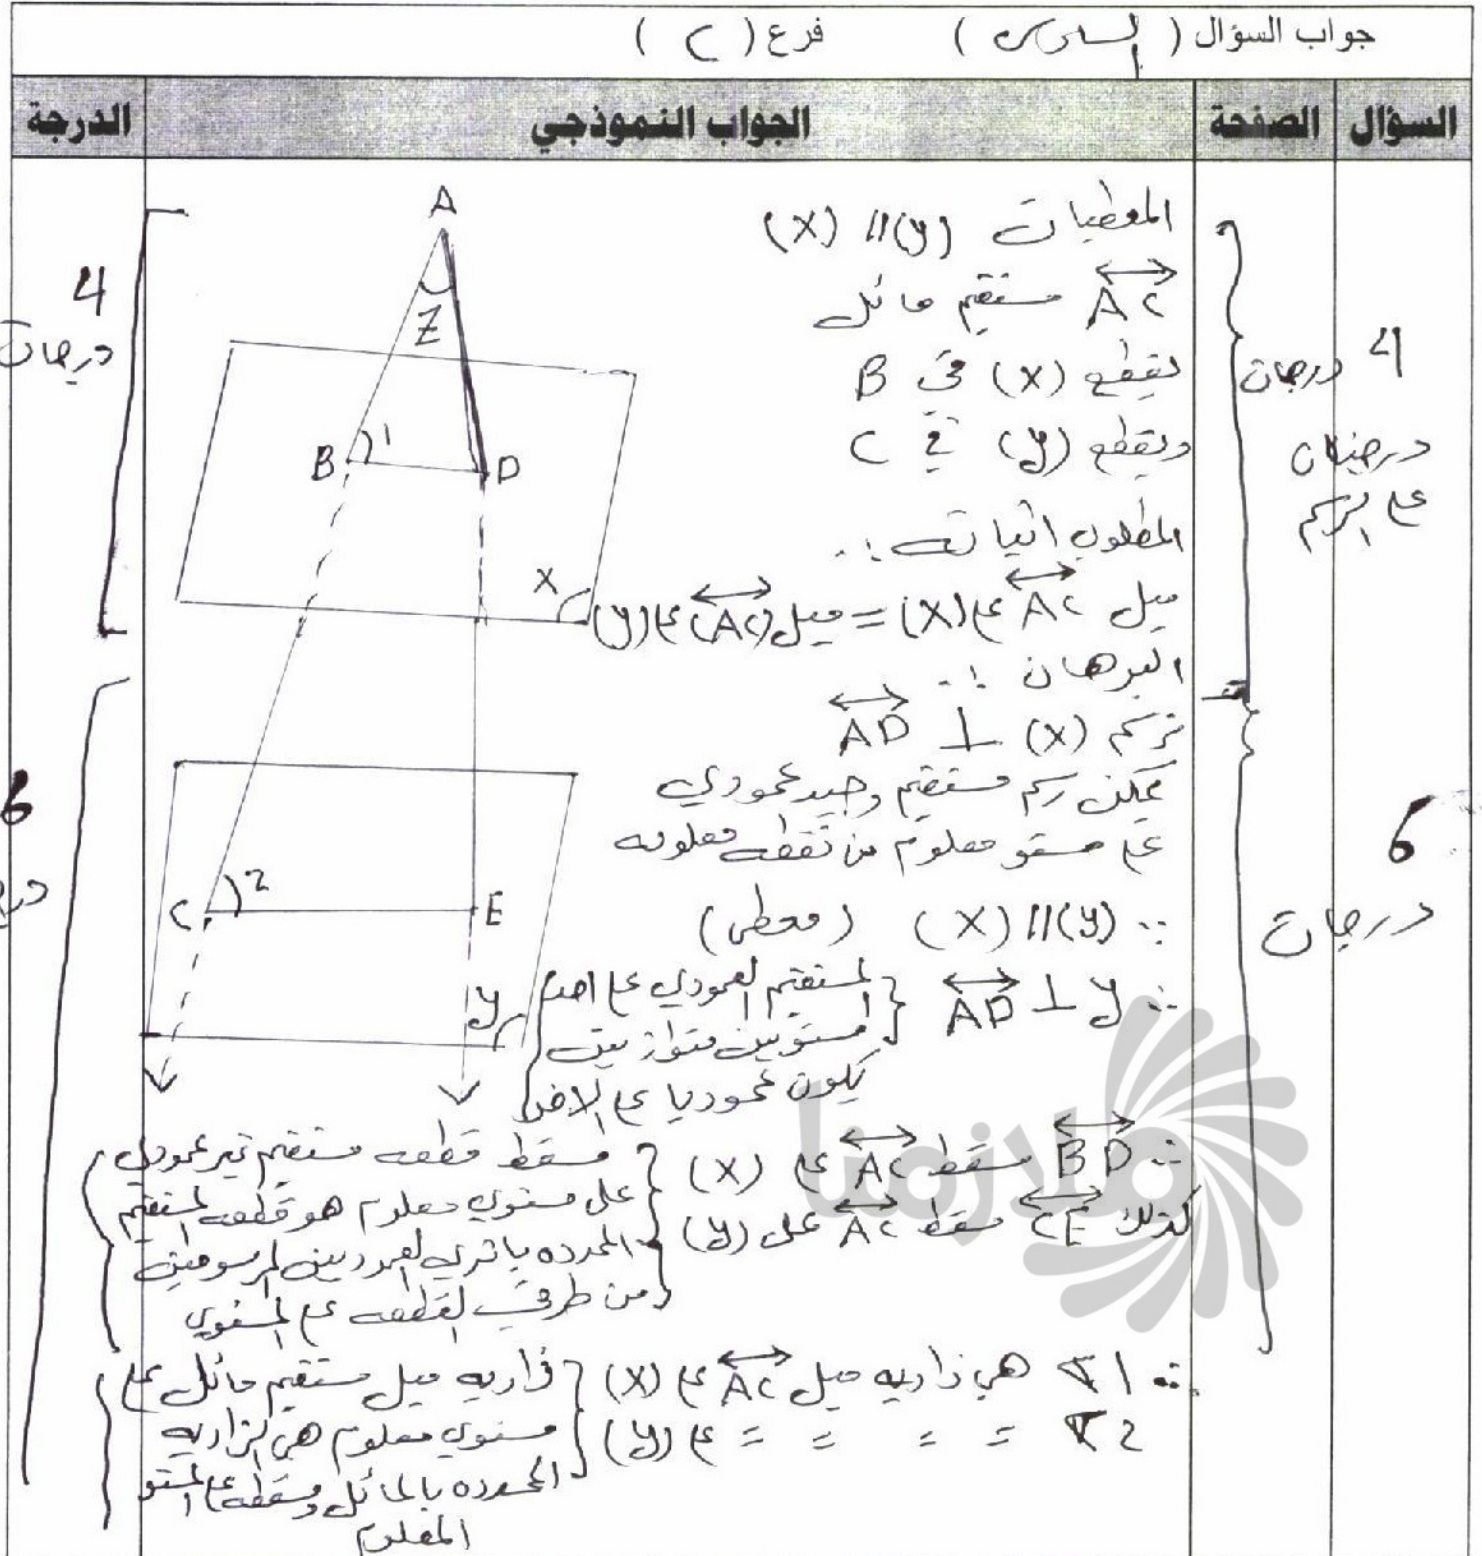 جواب السؤال ( السادس ) فرع ( C )
السؤال الصفحة الجواب النموذجي الدرجة
المعطيات (X) // (y)
AC مستقيم مائل
يقطع (X) في B
ويقطع (y) في C
المطلوب اثباته :.
ميل AC على (X) = ميل (AC) على (y)
البرهان :.
نرسم AD ⊥ (X)
يمكن رسم مستقيم وحيد عمودي
على مستو معلوم من نقطه معلومه
∵ (X) // (y) (معطى)
∴ AD ⊥ y { المستقيم العمودي على احد
المستويين متوازيين
يكون عموديا على الاخر }
∴ BD مسقط AC على (X)
كذلك CE مسقط AC على (y)
{ مسقط قطعه مستقيم غير عمودي
على مستوي معلوم هو قطعه المستقيم
المحدده باثري العمودين المرسومين
من طرفي القطعه على المستوي }
∴ ∢1 هي زاويه ميل AC على (X)
∢2 = = = = على (y)
{ زاويه ميل مستقيم مائل على
مستوي معلوم هي الزاويه
المحدده بالمائل ومسقطه على المستو
المعلوم
A
Z
B 1 D
X
C 2 E
y
4
درجات
6
4 درجات
درجتان
على الرسم
6
درجات
ملازمنا